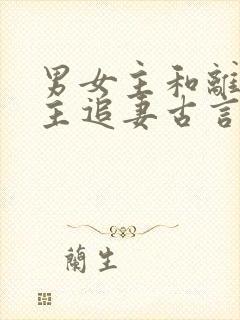 男女主和離
主追妻古言
蘭生